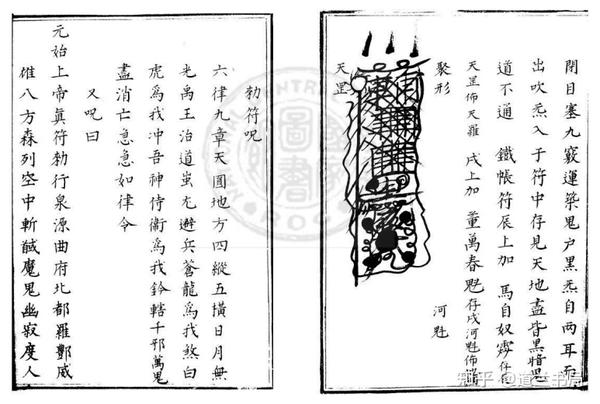 閉目塞九竅運築鬼户黑炁自两耳而
出吹炁入于符中存見天地盡皆黑暗思
道不通 鐵帳符辰上加 馬自奴雾存在
天罡佈天羅 戌上加 董萬春魁存戌河魁佈
聚形 河魁
天罡
勑符呪
六律九章天圓地方四縱五橫日月無
光禹王治道蚩尤避兵蒼龍為我煞白
虎為我冲吾神侍衛為我鈐轄千邪萬鬼
盡消亡急急如律令
又呪曰
元始上帝真符勑行泉源曲府北都羅酆威
雄八方森列空中斬馘魔鬼幽寂度人
圖書
知乎